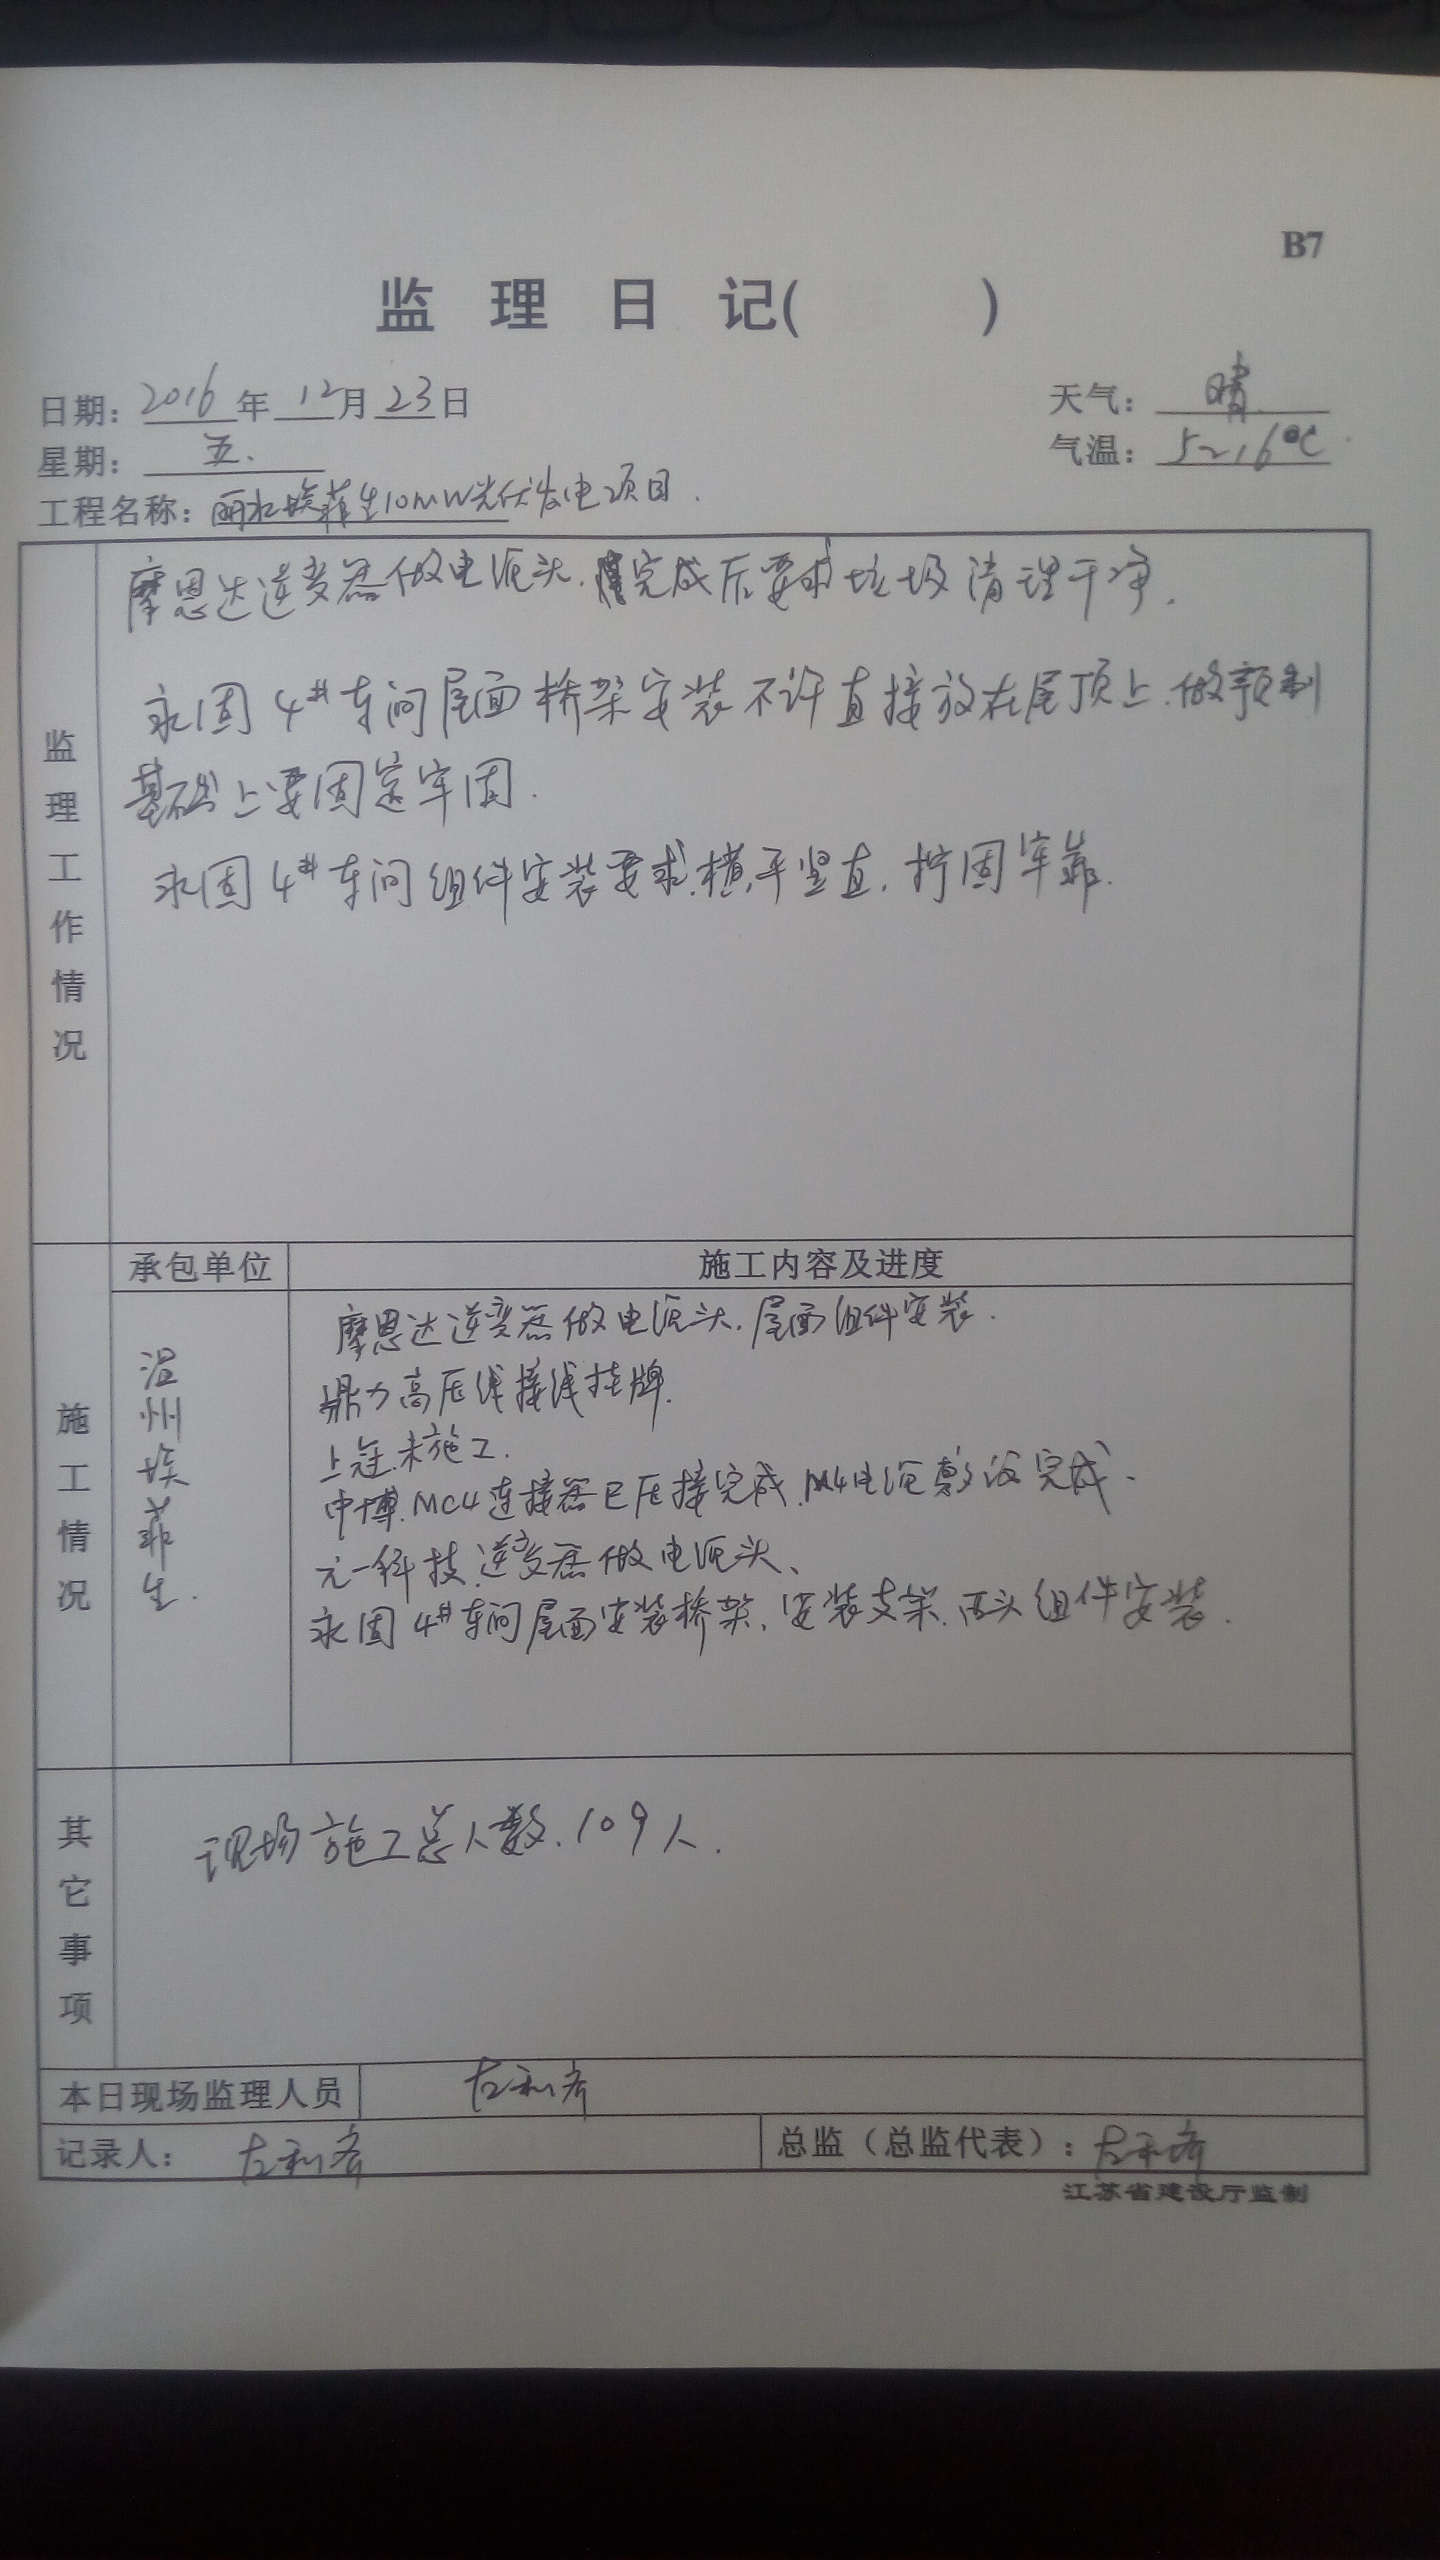 B7
监 理 日 记(　　　)
日期：2016年12月23日　天气：晴
星期：五.　气温：5~16℃.
工程名称：丽水埃菲生10MW光伏发电项目.
监理工作情况
摩恩达逆变器做电缆头.完成后要求垃圾清理干净.
永固4#车间屋面桥架安装不许直接放在屋顶上.做预制
基础上要固定牢固.
永固4#车间组件安装要求.横平竖直.拧固牢靠.
承包单位　施工内容及进度
施工情况
温州埃菲生.
摩恩达逆变器做电缆头.屋面组件安装.
鼎力高压线接线挂牌.
上冠.未施工.
中博.MC4连接器已压接完成.M4电缆敷设完成.
元一科技.逆变器做电缆头、
永固4#车间屋面安装桥架.安装支架.西头组件安装.
其它事项
现场施工总人数.109人.
本日现场监理人员　左利
记录人：左利　总监（总监代表）：左利
江苏省建设厅监制